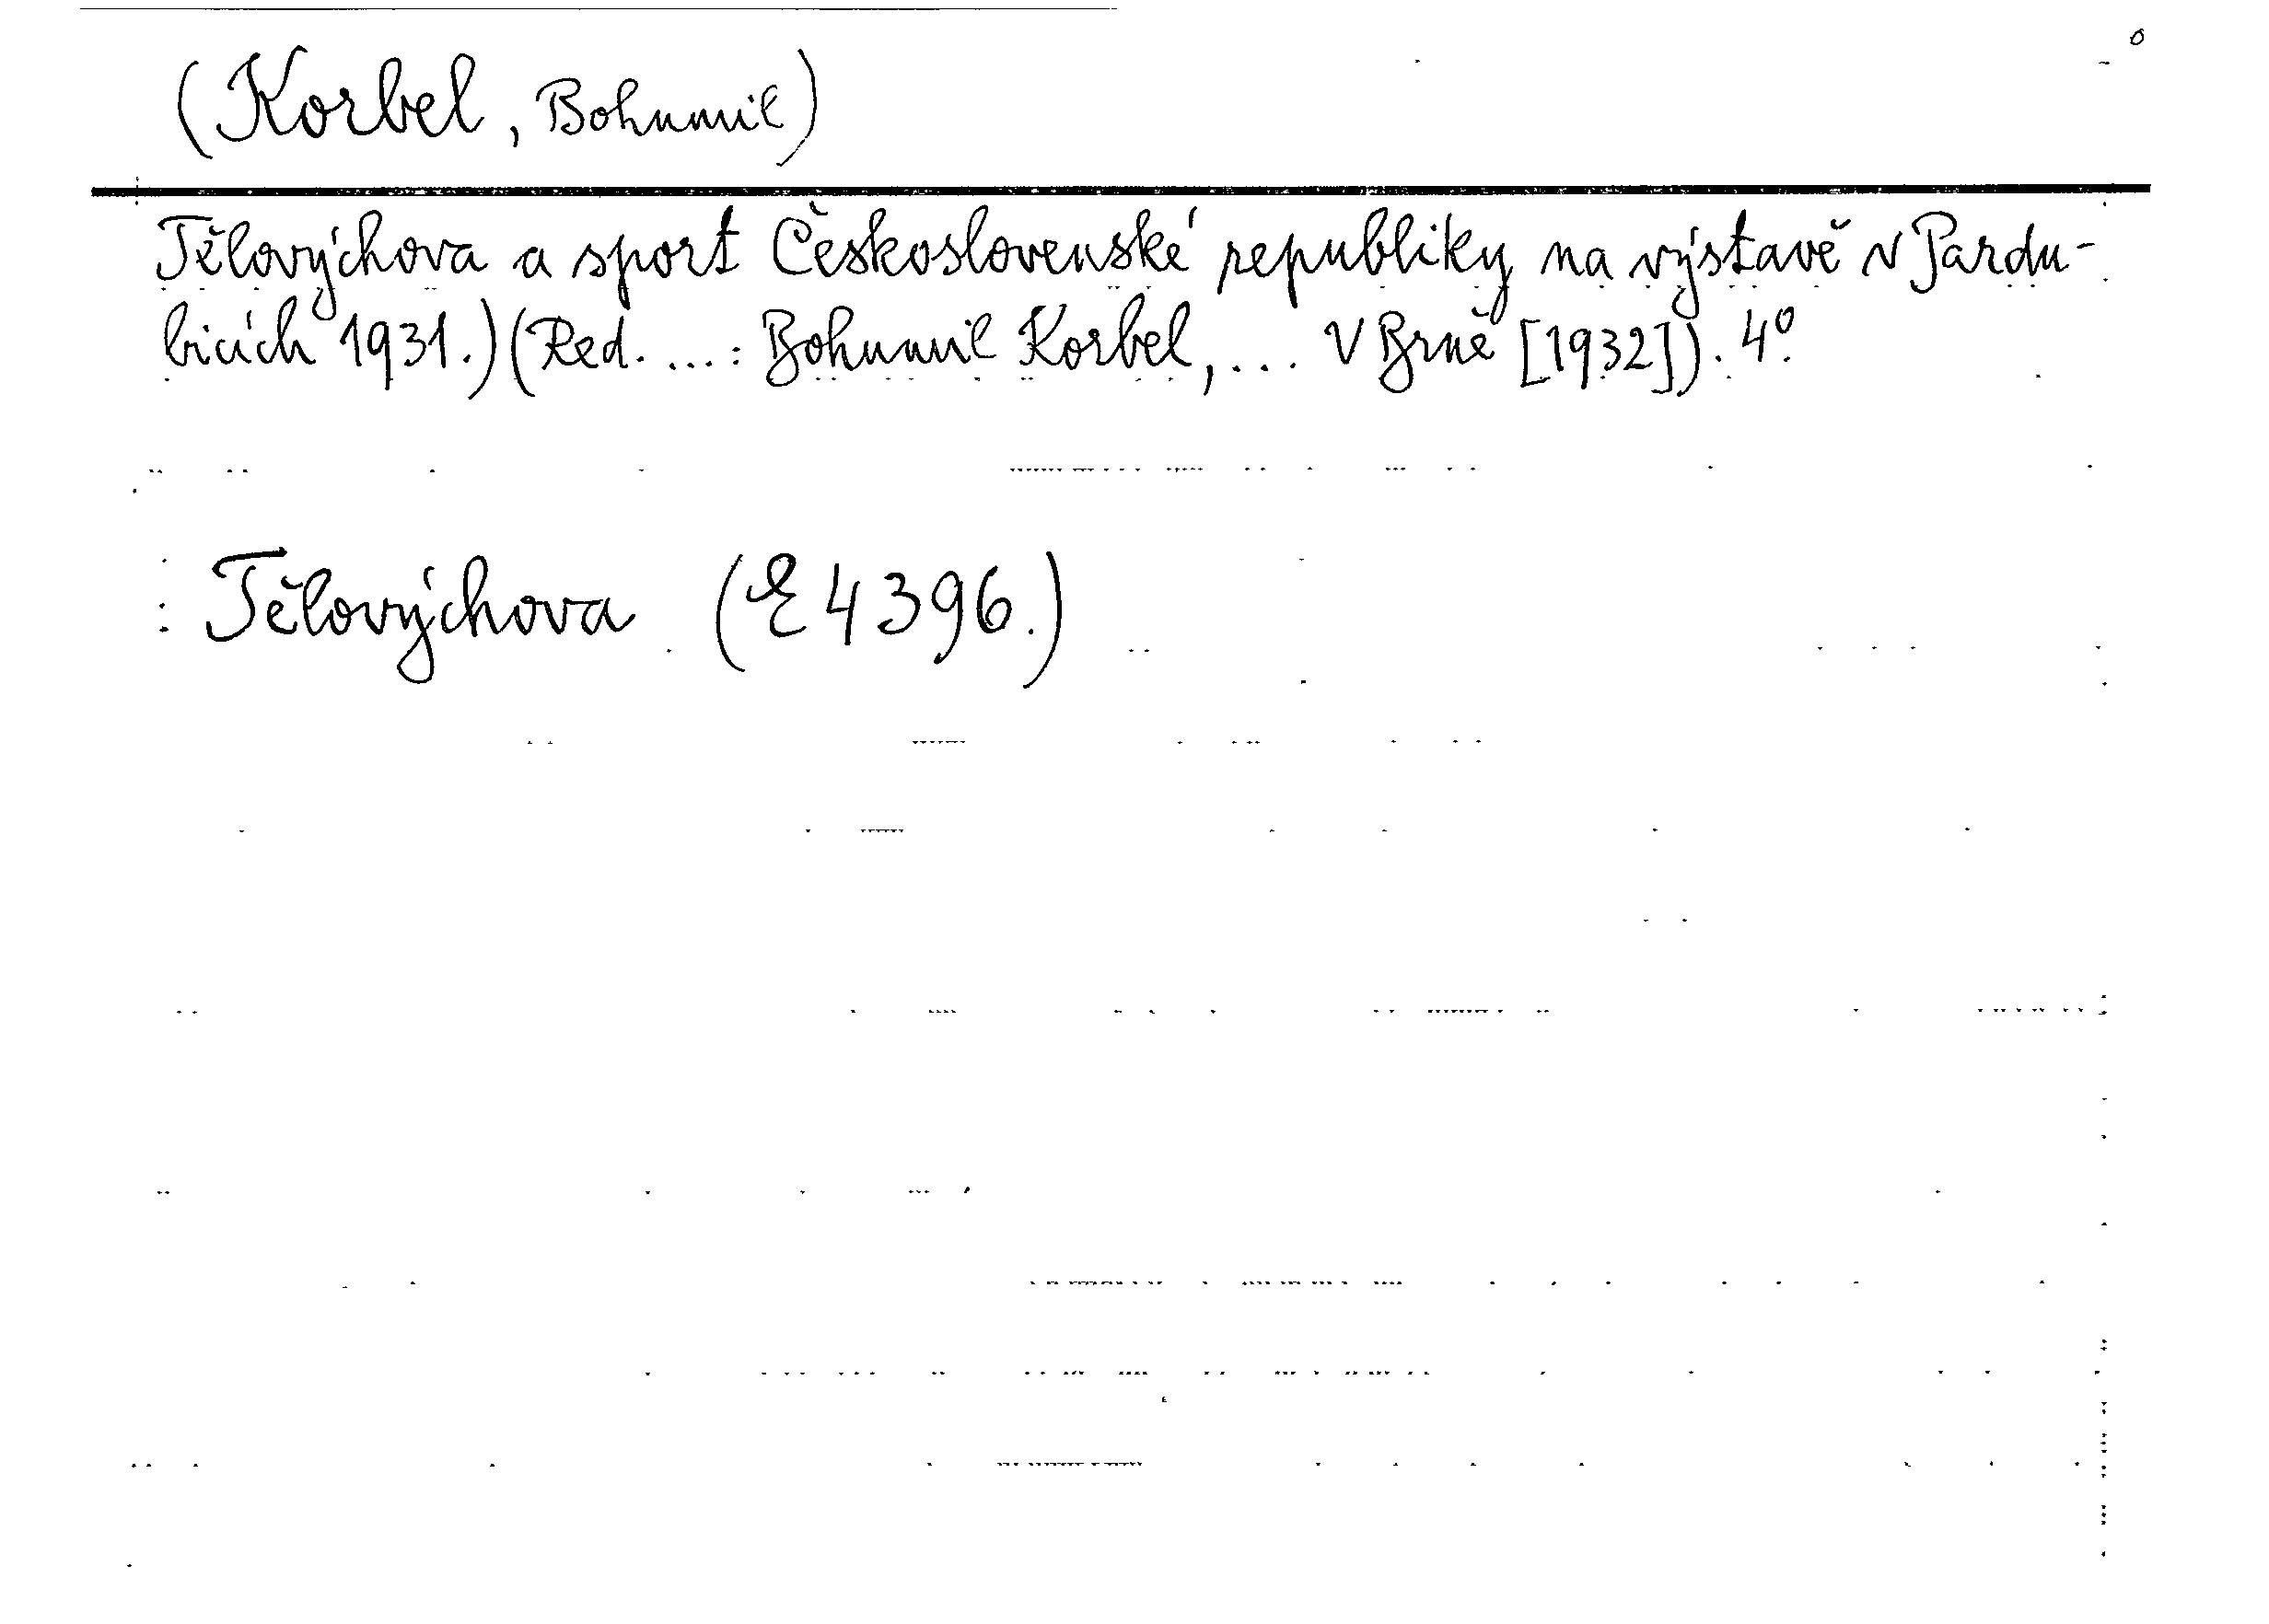 (Korbel, Bohumil)
Tělovýchova a sport Československé republiky na výstavě v Pardu-
bicích 1931.) (Red. ...: Bohumil Korbel, ... V Brně [1932]). 4°.
Tělovýchova (E 4396.)